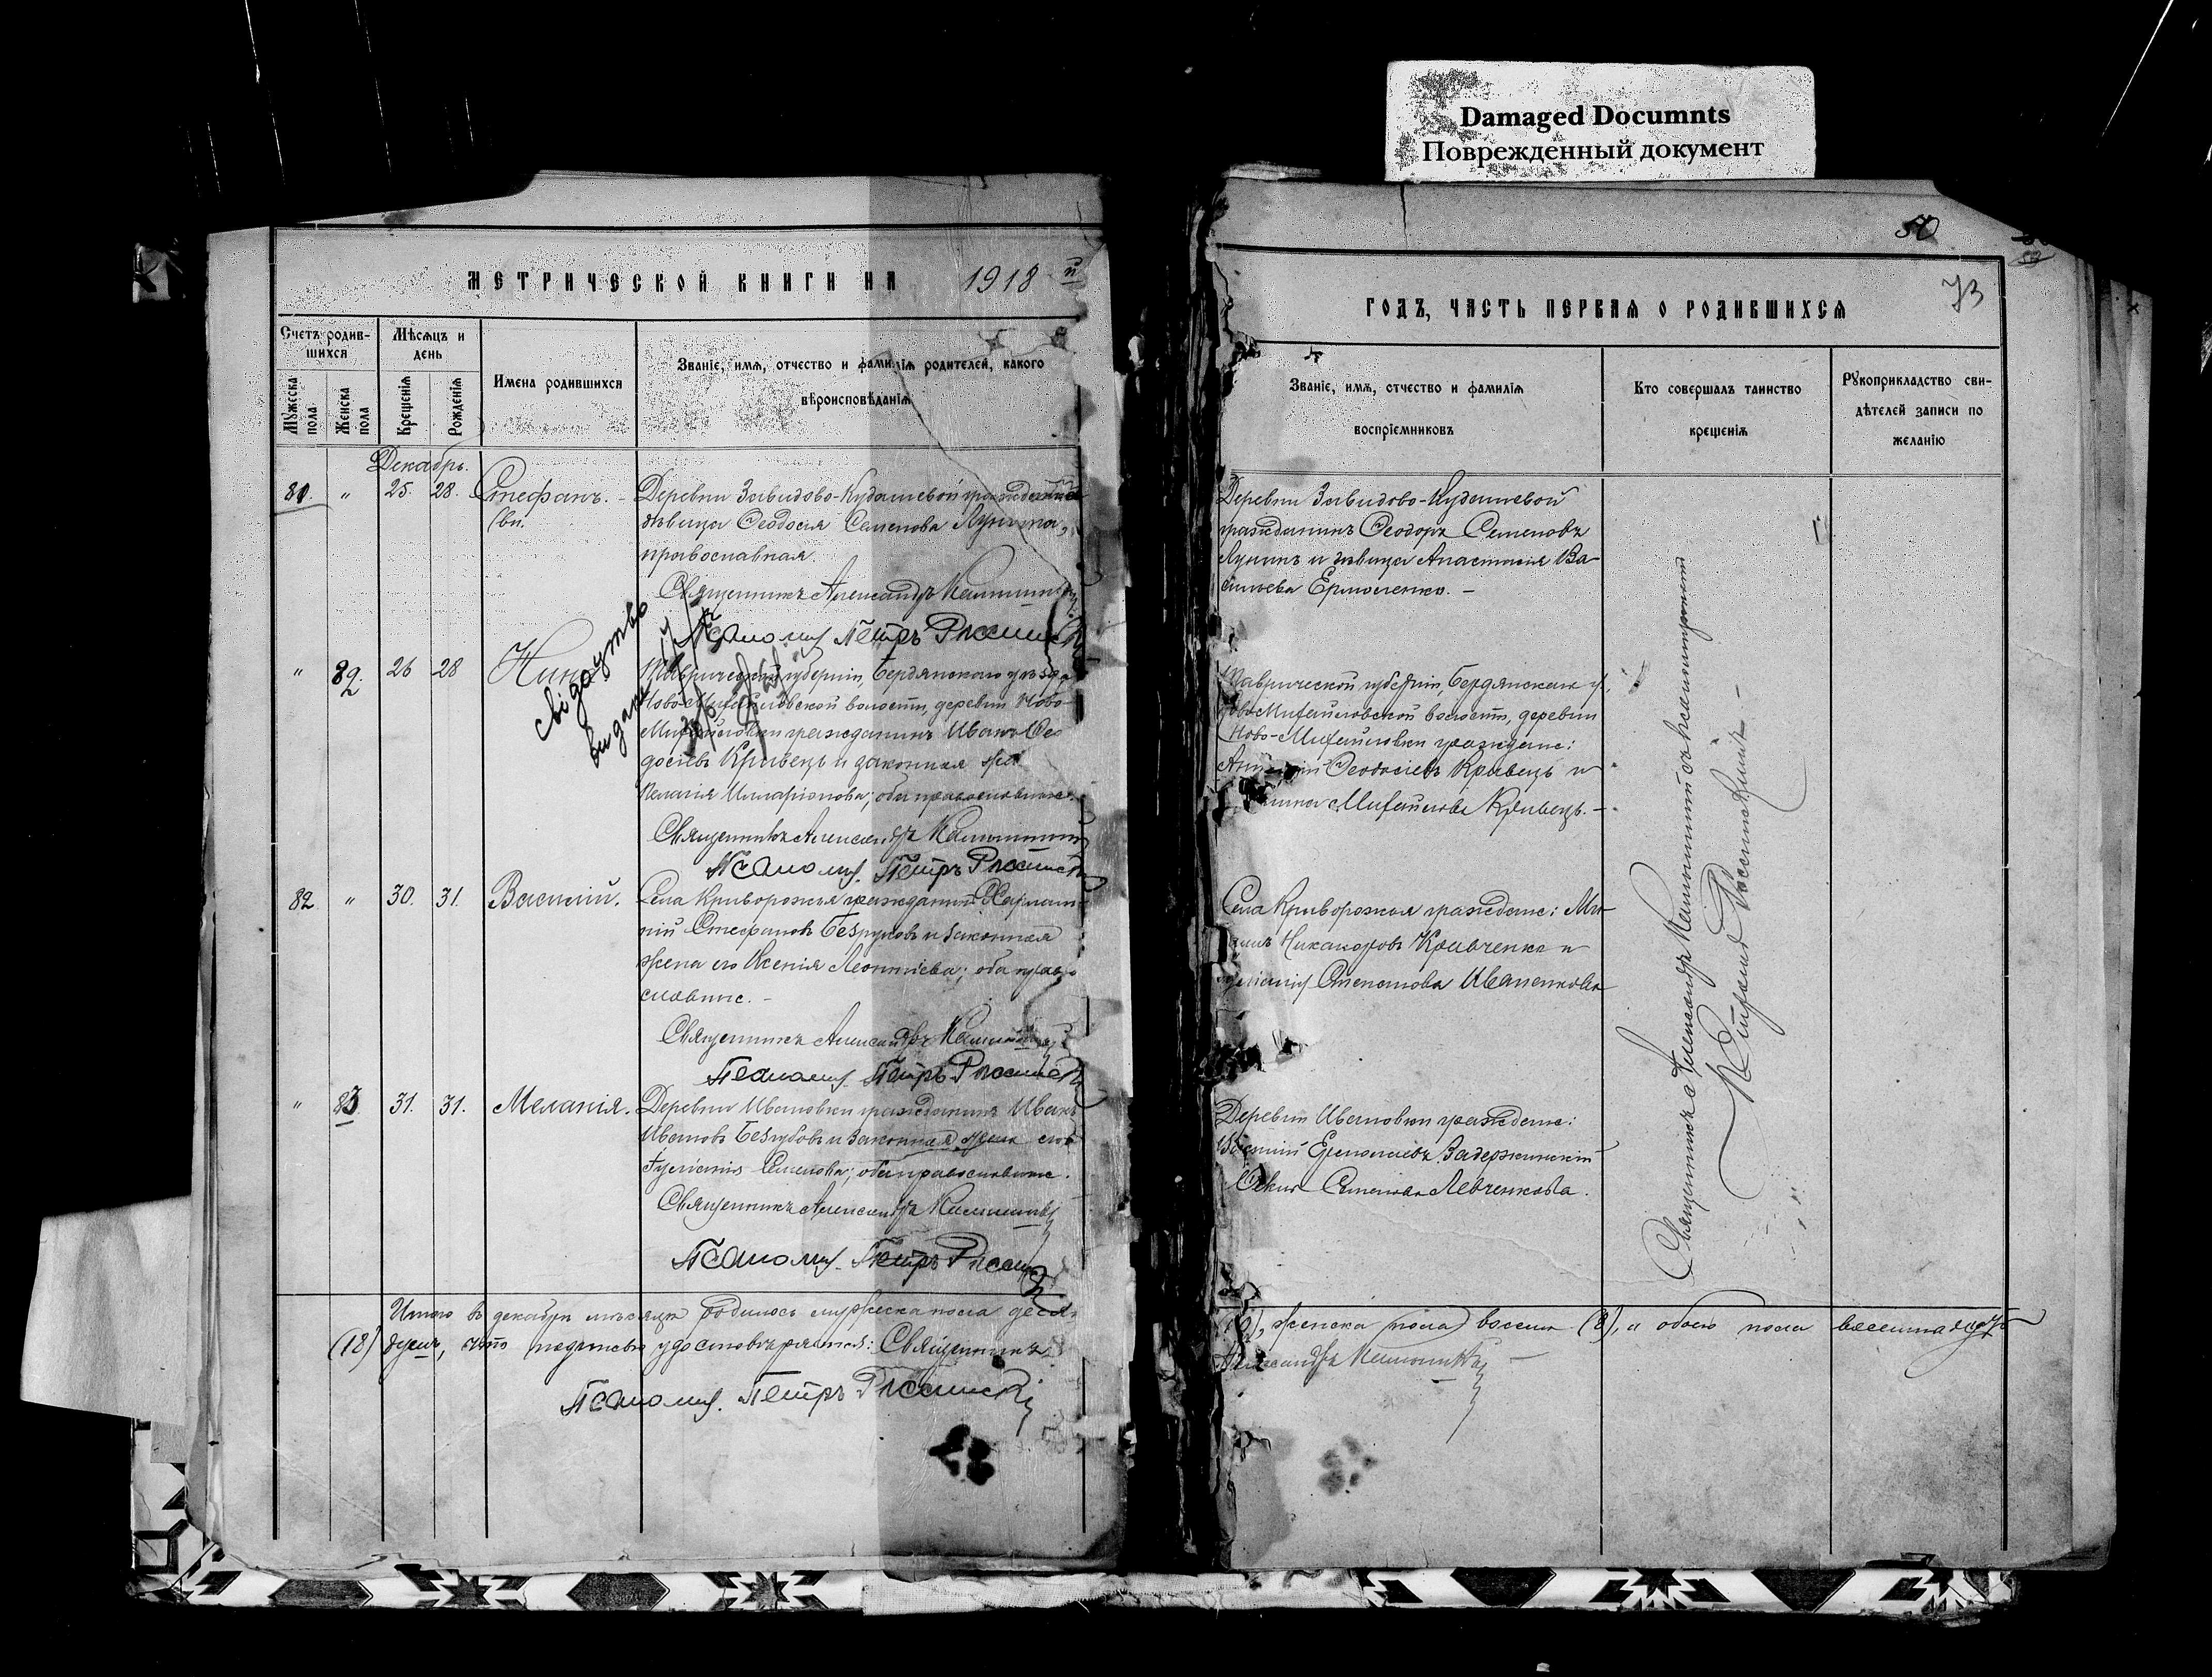 Damaged Documnts
Поврежденный документ
50
73
МЕТРИЧЕСКОЙ КНИГИ НА 1918 й
ГОДЪ, ЧАСТЬ ПЕРВАЯ О РОДИВШИХСЯ
Счетъ родив-
шихся
Мужеска
пола
Женска
пола
Мѣсяцъ и
день
Крещенія
Рожденія
Имена родившихся
Званіе, имя, отчество и фамилія родителей, какого
вѣроисповѣданія
Званіе, имя, отчество и фамилія
воспріемниковъ
Кто совершалъ таинство
крещенія
Рукоприкладство сви-
дѣтелей записи по
желанію
Декабрь.
81. " 25. 28. Стефанъ. -
Деревни Завидово-Кудашевой гражданка
дѣвица Ѳеодосія Семенова Лунина,
православная.
Священникъ Александръ
Псаломщ. Петръ
Деревни Завидово-Кудашевой
гражданинъ Ѳеодоръ Семеновъ
Лунинъ и дѣвица Анастасія Ва-
сильева Ермоленко. -
" 82. 26 28 Нина
свідоцтво
видане
Таврической губерніи, Бердянского уѣзда,
Ново-Михайловской волости, деревни Ново-
Михайловки гражданинъ Иванъ Ѳео
досіевъ Кривецъ и законная жена
Пелагія Илларіонова; оба православные.
Священникъ Александръ
Псаломщ. Петръ
Таврической губерніи, Бердянскаго у.
Ново-Михайловской волости, деревни
Ново-Михайловки граждане:
Ѳеодосіевъ Кривецъ и
Михайлова Кривецъ. -
82 " 30. 31. Василій.
Села Криворожья гражданинъ Харлам-
пій Стефановъ Безруковъ и законная
жена его Ксенія Леонтіева; оба право
славные. -
Священникъ Александръ
Псаломщ. Петръ
Села Криворожья граждане: Ми-
Никаноровъ Кравченко и
Степанова Иваненкова
" 83. 31. 31. Меланія.
Деревни Ивановки гражданинъ Иванъ
Ивановъ Беззубовъ и законная жена его
Іуліанія Семенова; оба православные.
Священникъ Александръ
Псаломщ. Петръ
Деревни Ивановки граждане:
Василій Ермолаевъ Задержинскій
Семенова Левченкова.
Священникъ Александръ съ псаломщикомъ
Петромъ
Итого въ декабрѣ мѣсяцѣ родилось мужеска пола деся-
женска пола восемь (8), а обоего пола восемнадцать
(18) душъ, что подписью удостовѣряется: Священникъ
Александръ
Псаломщ. Петръ